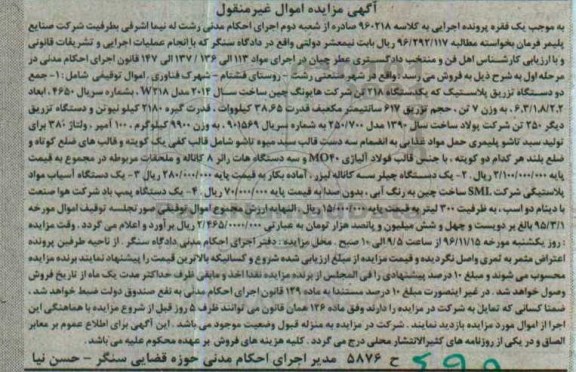 آگهی مزایده اموال غیرمنقول
به موجب یک فقره پرونده اجرایی به کلاسه ۹۶۰۲۱۸ صادره از شعبه دوم اجرای احکام مدنی رشت له نیما اشرفی بطرفیت شرکت صنایع
پلیمر فرمان بخواسته مطالبه ۹۶/۲۹۲/۱۱۷ ریال بابت نیمعشر دولتی واقع در دادگاه سنگر که با انجام عملیات اجرایی و تشریفات قانونی
و با ارزیابی کارشناس اهل فن و منتخب دادگستری عطر چیان در اجرای مواد ۱۱۳ الی ۱۳۶ / ۱۳۷ الی ۱۴۷ قانون اجرای احکام مدنی در
مرحله اول به شرح ذیل به فروش می رسد. واقع در شهر صنعتی رشت - روستای قشتام - شهرک فناوری. اموال توقیفی شامل: ۱- جمع
دو دستگاه تزریق پلاستیک که یک دستگاه ۲۱۸ تن شرکت هایونگ چین ساخت سال ۲۰۱۴ مدل W۲۱۸، بشماره سریال ۴۶۵۰، ابعاد
۶.۳/۱.۸/۲.۲، به وزن ۷ تن، حجم تزریق ۶۱۷ سانتیمتر مکعب قدرت ۳۸.۶۵ کیلووات، قدرت گیره ۲۱۸۰ کیلو نیوتن و دستگاه تزریق
دیگر ۲۵۰ تن شرکت پولاد ساخت سال ۱۳۹۰ مدل ۲۵۰/۷۰۰ به شماره سریال ۹۰۱۵۶۹، به وزن ۹۹۰۰ کیلوگرم، ۱۰۰ آمپر، ولتاژ ۳۸۰ برای
تولید سبد تاشو پلیمری حمل مواد غذایی به انضمام سه دست قالب سبد میوه تاشو شامل قالب کفی یک کویته و قالب های ضلع کوتاه و
ضلع بلند هر کدام دو کویته، با جنس قالب فولاد آلیاژی MO۴۰ و سه دستگاه هات رانر ۸ کاناله و ملحقات مربوطه در مجموع به قیمت
۳/۱۰۰/۰۰۰/۰۰۰ ریال. ۲- یک دستگاه چیلر سه کاناله لیزر، آماده بکار به قیمت ۲۸۰/۰۰۰/۰۰۰ ریال ۳- یک دستگاه آسیاب مواد
پلاستیکی شرکت SML ساخت چین به رنگ آبی، بدون صدا به قیمت پایه ۷۰/۰۰۰/۰۰۰ ریال ۴- یک دستگاه پمپ باد شرکت هوا صنعت
با دینام دو اسب، به ظرفیت ۳۰۰ لیتر به قیمت پایه ۱۵/۰۰۰/۰۰۰ ریال. النهایه ارزش مجموع اموال توقیفی صورتجلسه توقیف اموال مورخه
۹۵/۳/۱ بالغ بر دویست و چهل و شش میلیون و پانصد هزار تومان به عبارتی ۲/۴۶۵/۰۰۰/۰۰۰ ریال برآورد و اعلام می گردد. وقت مزایده
: روز یکشنبه مورخه ۹۶/۱۱/۱۵ از ساعت ۹/۵ الی ۱۰ صبح. محل مزایده: دفتر اجرای احکام مدنی دادگاه سنگر. از ناحیه طرفین پرونده
اعتراض مثمر به ثمری واصل نگردیده و قیمت مزایده از مبلغ ارزیابی شده شروع و کسانیکه بالاترین قیمت را پیشنهاد نمایند برنده مزایده
محسوب می شوند و مبلغ ۱۰ درصد پیشنهادی را فی المجلس از برنده مزایده نقدا اخذ و مابقی ظرف حداکثر مدت یک ماه از تاریخ فروش
وصول خواهد شد. در غیر اینصورت مبلغ ۱۰ درصد مستندا به ماده ۱۲۹ قانون اجرای احکام مدنی به نفع صندوق دولت ضبط خواهد شد.
ضمنا کسانی که تمایل به شرکت در مزایده را دارند وفق ماده ۱۲۶ همان قانون می توانند ظرف ۵ روز قبل از شروع مزایده با هماهنگی این
اجرا از اموال مورد مزایده بازدید نمایند. شرکت در مزایده به منزله قبول وضعیت موجود می باشد. این آگهی برای اطلاع عموم بر معابر
الصاق و در یکی از روزنامه های کثیرالانتشار محلی درج می گردد. کلیه هزینه های فروش بر عهده محکوم علیه می باشد.
ح ۵۸۷۶ مدیر اجرای احکام مدنی حوزه قضایی سنگر - حسن نیا